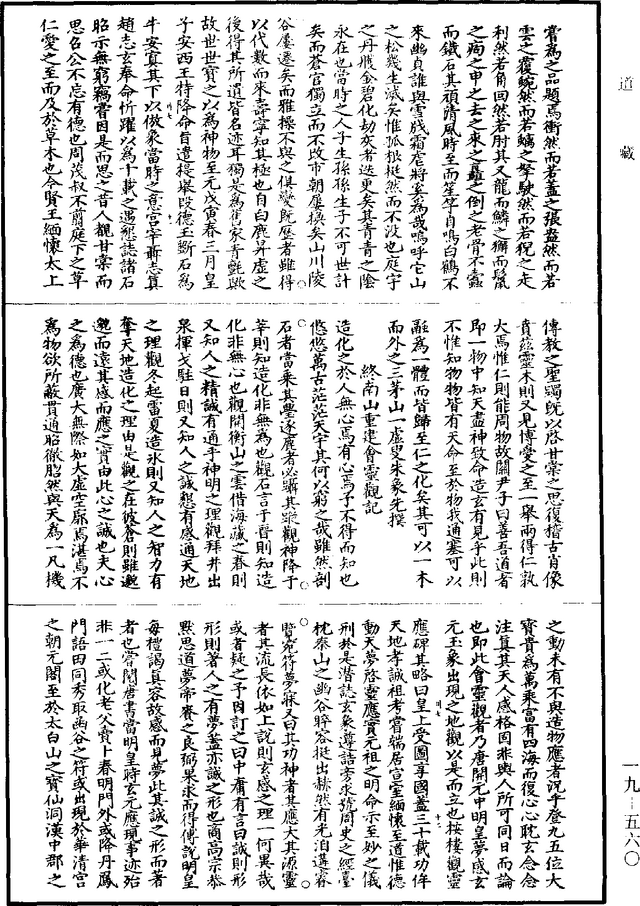 道藏
嘗為之品題焉衝然而若蓋之張盎然而若
雲之覆蜿然而若螭之拏駛然而若猊之走
利然若角回然若肘其叉龍而鱗之獬而鬣
之殉之申之去之來之矗之倒之老骨不蠹
而鐵石其頑清風時至而笙竽自鳴白鶴不
來幽貞誰與雪殘霜虐將奚為哉嗚呼它山
之松幾生滅矣惟孤根挺然而不沒也庭宇
之丹雘金碧化劫灰者迭更矣其青青之陰
永在也當時之人子生孫孫生子不可世計
矣而蒼官獨立而不改市朝屢換矣山川陵
谷屢遷矣而雅操不與之俱變既歷者雖得
以代數而來壽寧知其極也自白鹿昇虛之
後得其所遺皆名迹耳獨是為舊家青氈歟
故世世寶之以為神物至元戊寅春三月皇
子安西王特降命旨遣提舉段德玉斲石為
牛安寘其下以倣象當時之意宮宰靳志真
趙志玄奉命忻躍以為千載之遇懇誌諸石
昭示無窮竊嘗因是而思之昔人觀甘棠而
思召公不忘有德也周茂叔不翦庭下之草
仁愛之至而及於草木也今賢王緬懷太上
傳教之聖躅既以啟甘棠之思復稽古肖像
賁茲靈木則又見博愛之至一舉兩得仁孰
大焉惟仁則能周物故關尹子曰善吾道者
即一物中知天盡神致命造玄有見乎此則
不惟知物物皆有天命至於物我通塞可以
融為一體而皆歸至仁之化矣其可以一本
而外之三茅山一虛叟朱象先撰
終南山重建會靈觀記
造化之於人無心焉有心焉予不得而知也
悠悠萬古茫茫天宇其何以窮之哉雖然剖
石者當乘其璺逐鹿者必躡其蹤觀神降于
莘則知造化非無為也觀石言于晉則知造
化非無心也觀開衡山之雲借海藏之春則
又知人之精誠有通乎神明之理觀拜井出
泉揮戈駐日則又知人之誠懇有感通天地
之理觀冬起雷夏造冰則又知人之智力有
奪天地造化之理由是觀之在彼蒼則雖邈
邈而遠其感而應之實由此心之誠也夫心
之為德也廣大無際如太虛空廓焉湛焉不
為物欲所蔽貫通昭徹胎然與天為一凡機
之動未有不與造物應者況乎登九五位大
寶貴為萬乘富有四海而復心心耽玄念念
注真其天人感格固非與人所可同日而論
也即此會靈觀者乃唐開元中明皇夢感玄
元玉象出現之地觀以是而立也按樓觀靈
應碑其略曰皇上受圖享國蓋三十載功侔
天地孝誠祖考嘗端居宣室緬懷至道惟德
動天夢啟靈應實元祖之明命示至妙之儀
刑於是潛誌玄象遵誥旁求號周史之經臺
枕泰山之幽谷睟容挺出赫然有光洎遘睿
覽宛符夢寐又曰其功神者其應大其源靈
者其流長依如上說則玄感之理一何異哉
或者疑之予因訂之曰中庸有言曰誠則形
形則著人之有夢蓋亦誠之形也商高宗恭
默思道夢帝賚之良弼果求而得傅說明皇
每禮謁真容故感而見夢此其誠之形而著
者也嘗閱唐書當明皇時玄元應現事迹殆
非一二或化老父賣卜春明門外或降丹鳳
門語田同秀取函谷之符或出現於華清宮
之朝元閣至於太白山之寶仙洞漢中郡之
一九—五六〇